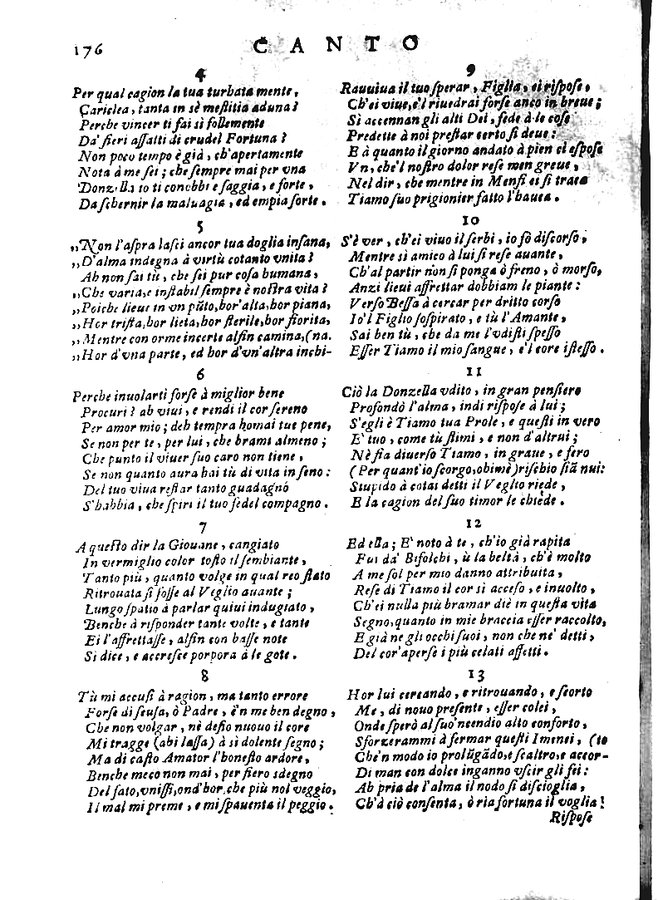 176
CANTO
4
Per qual cagion la tua turbata mente,
Cariclea, tanta in sè mestitia aduna?
Perche vincer ti fai sì follemente
Da' fieri assalti di crudel Fortuna?
Non poco tempo è già, ch'apertamente
Nota à me sei; che sempre mai per vna
Donzella io ti conobbi e saggia, e forte,
Da schernir la maluagia, ed empia sorte.
5
„Non l'aspra lasci ancor tua doglia insana,
„D'alma indegna à virtù cotanto vnita?
Ah non sai tù, che sei pur cosa humana,
„Che varia, e instabil sempre è nostra vita?
„Poiche lieue in vn pũto, hor'alta, hor piana,
„Hor trista, hor lieta, hor sterile, hor fiorita,
„Mentre con orme incerte alfin camina, (na.
„Hor d'vna parte, ed hor d'vn'altra inchi-
6
Perche inuolarti forse à miglior bene
Procuri? ah viui, e rendi il cor sereno
Per amor mio; deh tempra homai tue pene,
Se non per te, per lui, che brami almeno;
Che punto il viuer suo caro non tiene,
Se non quanto aura hai tù di vita in seno:
Del tuo viua restar tanto guadagno
S'habbia, che spiri il tuo fedel compagno.
7
A questo dir la Giouane, cangiato
In vermiglio color tosto il sembiante,
Tanto più, quanto volge in qual reo stato
Ritrouata si fosse al Veglio auante;
Lungo spatio à parlar quiui indugiato,
Benche à risponder tante volte, e tante
Ei l'affrettasse, alfin con basse note
Sì dice, e accresce porpora à le gote.
8
Tù mi accusi à ragion, ma tanto errore
Forse di scusa, ò Padre, è'n me ben degno,
Che non volgar, nè desio nuouo il core
Mi tragge (ahi lassa) à sì dolente segno;
Ma di casto Amator l'honesto ardore,
Benche meco non mai, per fiero sdegno
Del fato, vnissi, ond'hor, che più nol veggio,
Il mal mi preme, e mi spauenta il peggio.
9
Rauuiua il tuo sperar, Figlia, ei rispose,
Ch'ei viue, e'l riuedrai forse anco in breue;
Sì accennan gli alti Dei, fede à le cose
Predette à noi prestar certo si deue:
E à quanto il giorno andato à pien ci espose
Vn, che'l nostro dolor rese men greue,
Nel dir, che mentre in Menfi ei si traea
Tiamo suo prigionier fatto l'hauea.
10
S'è ver, ch'ei viuo il serbi, io sò discorso,
Mentre sì amico à lui si rese auante,
Ch'al partir non si ponga ò freno, ò morso,
Anzi lieui affrettar dobbiam le piante:
Verso Bessa à cercar per dritto corso
Io'l Figlio sospirato, e tù l'Amante,
Sai ben tù, che da me l'vdisti spesso
Esser Tiamo il mio sangue, e'l core istesso.
11
Ciò la Donzella vdito, in gran pensiero
Profondò l'alma, indi rispose à lui;
S'egli è Tiamo tua Prole, e questi in vero
E' tuo, come tù stimi, e non d'altrui;
Nè sia diuerso Tiamo, in graue, e fero
(Per quant'io scorgo, ohimè) rischio siã nui:
Stupido à cotai detti il Veglio riede,
E la cagion del suo timor le chiede.
12
Ed ella; E' noto à te, ch'io già rapita
Fui da' Bifolchi, ù la beltà, ch'è molto
A me sol per mio danno attribuita,
Rese di Tiamo il cor sì acceso, e inuolto,
Ch'ei nulla più bramar diè in questa vita
Segno, quanto in mie braccia esser raccolto,
E già ne gli occhi suoi, non che ne' detti,
Del cor'aperse i più celati affetti.
13
Hor lui cercando, e ritrouando, e scorto
Me, di nouo presente, esser colei,
Onde sperò al suo'ncendio alto conforto,
Sforzerammi à fermar questi Imenei, (to
Che'n modo io prolũgãdo, e scaltro, e accor-
Di man con dolce inganno vscir gli fei:
Ah pria de l'alma il nodo si discioglia,
Ch'à ciò consenta, ò ria fortuna il voglia!
Rispose